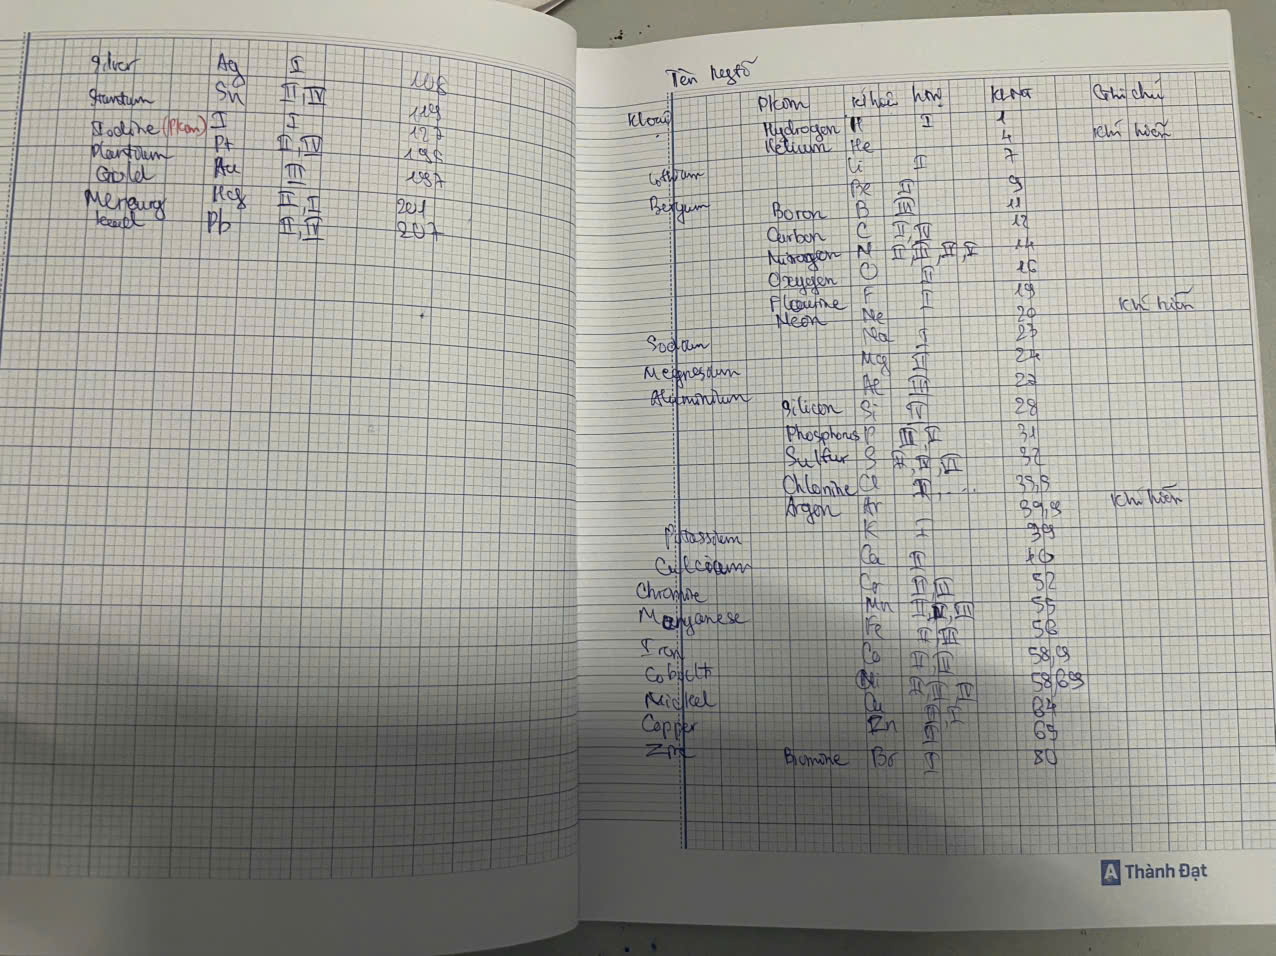 Silver Ag I 108
Stantum Sn II, IV 119
Iodine (Pkom) I I 127
Plantium Pt II, IV 195
Gold Au III 197
Mercury Hg II, I 201
Lead Pb II, IV 207
Tên ngtố
Kloại Pkom kí hiệu htrị klntử Ghi chú
Hydrogen H I 1
Helium He 4 khí hiếm
Lithium Li I 7
Beryum Be II 9
Boron B III 11
Carbon C II, IV 12
Nitrogen N II, III, IV, V 14
Oxygen O II 16
Flourine F I 19
Neon Ne 20 khí hiếm
Sodium Na I 23
Megnesium Mg II 24
Aluminium Al III 27
Silicon Si IV 28
Phosphorus P III, V 31
Sulfur S II, IV, VI 32
Chlorine Cl I, ... 35,5
Argon Ar 39,9 khí hiếm
Potassium K I 39
Calcium Ca II 40
Chromine Cr II, III 52
Manganese Mn II, IV, VII 55
Iron Fe II, III 56
Cobalt Co II, III 58,9
Nickel Ni 58,69
Copper Cu 64
Zn Zn II 65
Bromine Br I 80
A Thành Đạt